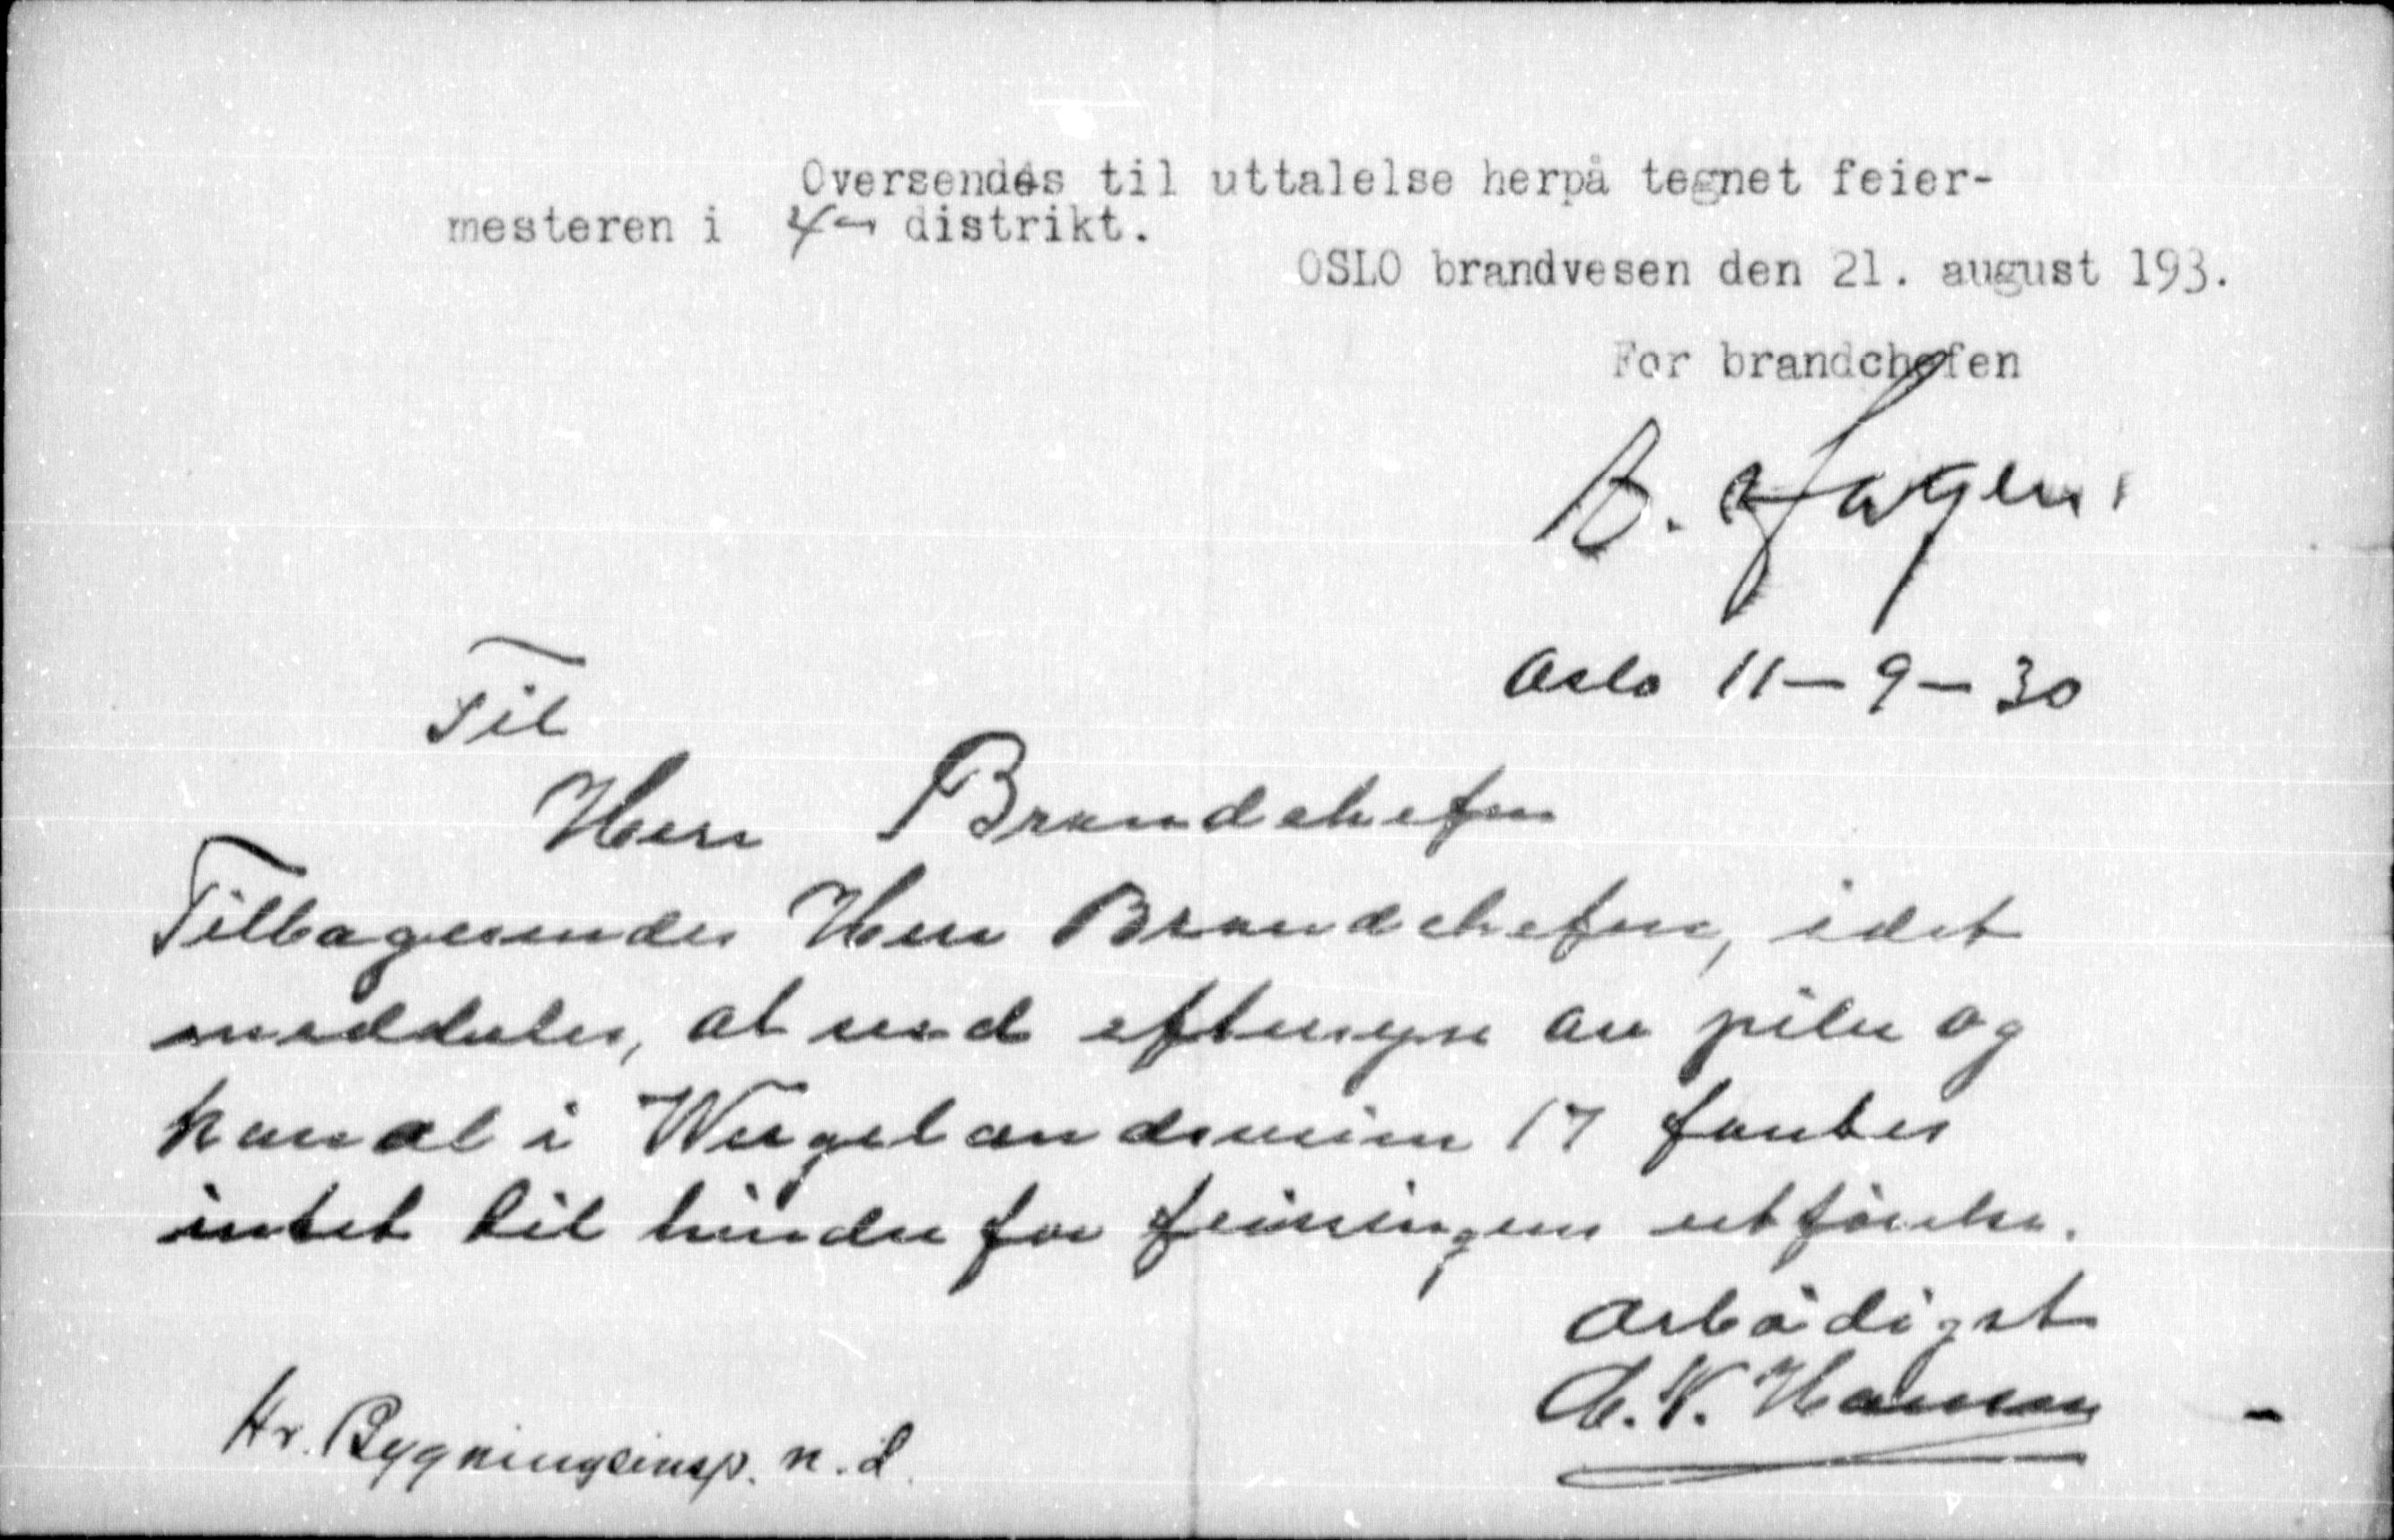 Oversendes til uttalelse herpå tegnet feier-
mesteren i 4de distrikt.
OSLO brandvesen den 21. august 193.
For brandchefen
B. Hagen
Oslo 11-9-30
Til
Herr Brandchefen
Tilbagesendes Herr Brandchefen, idet
meddeles, at ved eftersyn av piber og
kanal i Wergelandsveien 17 fantes
intet til hinder for feiningens utförelse.
Arbödigst
C. W. Hansen
Hr. Bygningsinsp. n. d.